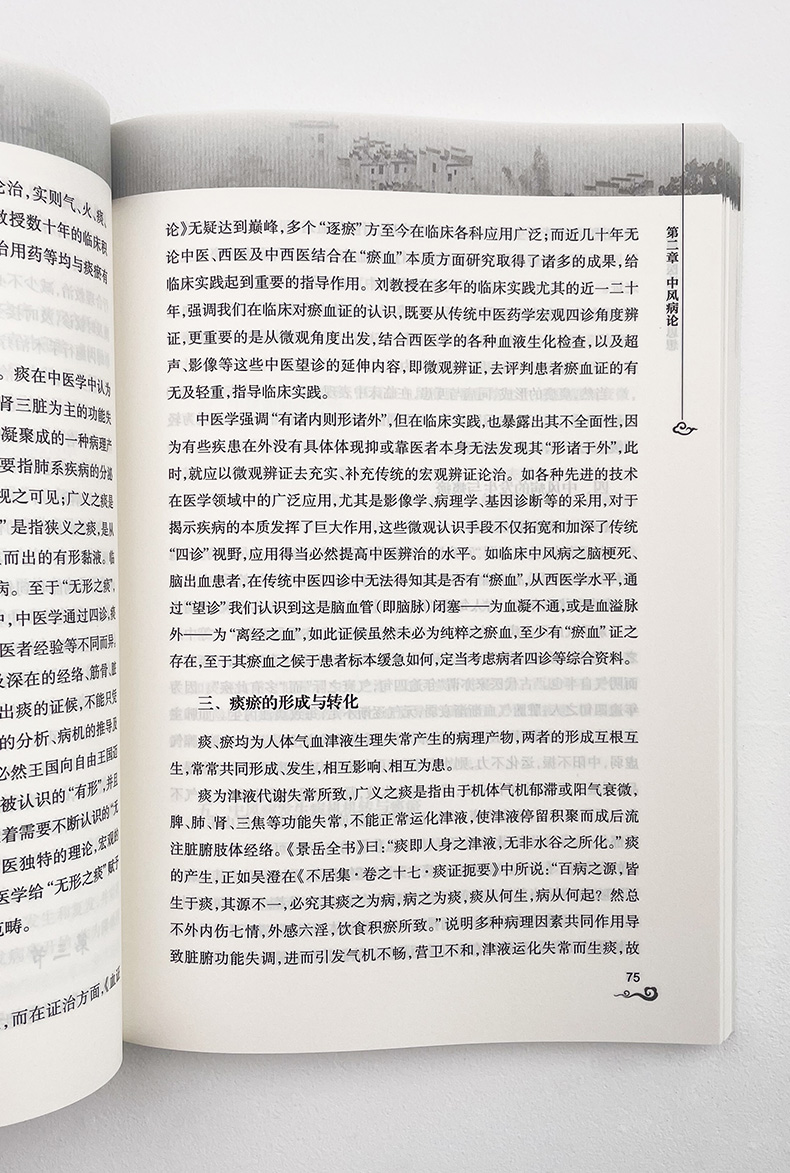 论治,实则气、火、痰、
教授数十年的临床积
治用药等均与痰瘀有
。痰在中医学中认为
肾三脏为主的功能失
凝聚成的一种病理产
要指肺系疾病的分泌
视之可见;广义之痰是
”是指狭义之痰,是从
且而出的有形黏液。临
病。至于“无形之痰”,
中,中医学通过四诊,痰
医者经验等不同而异。
及深在的经络、筋骨、脏
出痰的证候,不能只凭
的分析、病机的推导及
必然王国向自由王国迈
被认识的“有形”,并且
着需要不断认识的“无
医独特的理论,宏观的
医学给“无形之痰”赋予
范畴。
,而在证治方面,《血证
论》无疑达到巅峰,多个“逐瘀”方至今在临床各科应用广泛;而近几十年无
论中医、西医及中西医结合在“瘀血”本质方面研究取得了诸多的成果,给
临床实践起到重要的指导作用。刘教授在多年的临床实践尤其的近一二十
年,强调我们在临床对瘀血证的认识,既要从传统中医药学宏观四诊角度辨
证,更重要的是从微观角度出发,结合西医学的各种血液生化检查,以及超
声、影像等这些中医望诊的延伸内容,即微观辨证,去评判患者瘀血证的有
无及轻重,指导临床实践。
中医学强调“有诸内则形诸外”,但在临床实践,也暴露出其不全面性,因
为有些疾患在外没有具体体现抑或靠医者本身无法发现其“形诸于外”,此
时,就应以微观辨证去充实、补充传统的宏观辨证论治。如各种先进的技术
在医学领域中的广泛应用,尤其是影像学、病理学、基因诊断等的采用,对于
揭示疾病的本质发挥了巨大作用,这些微观认识手段不仅拓宽和加深了传统
“四诊”视野,应用得当必然提高中医辨治的水平。如临床中风病之脑梗死、
脑出血患者,在传统中医四诊中无法得知其是否有“瘀血”,从西医学水平,通
过“望诊”我们认识到这是脑血管(即脑脉)闭塞——为血凝不通,或是血溢脉
外——为“离经之血”,如此证候虽然未必为纯粹之瘀血,至少有“瘀血”证之
存在,至于其瘀血之候于患者标本缓急如何,定当考虑病者四诊等综合资料。
三、痰瘀的形成与转化
痰、瘀均为人体气血津液生理失常产生的病理产物,两者的形成互根互
生,常常共同形成、发生,相互影响、相互为患。
痰为津液代谢失常所致,广义之痰是指由于机体气机郁滞或阳气衰微,
脾、肺、肾、三焦等功能失常,不能正常运化津液,使津液停留积聚而成后流
注脏腑肢体经络。《景岳全书》曰:“痰即人身之津液,无非水谷之所化。”痰
的产生,正如吴澄在《不居集·卷之十七·痰证扼要》中所说:“百病之源,皆
生于痰,其源不一,必究其痰之为病,病之为痰,痰从何生,病从何起?然总
不外内伤七情,外感六淫,饮食积瘀所致。”说明多种病理因素共同作用导
致脏腑功能失调,进而引发气机不畅,营卫不和,津液运化失常而生痰,故
75
第二章 中风病论